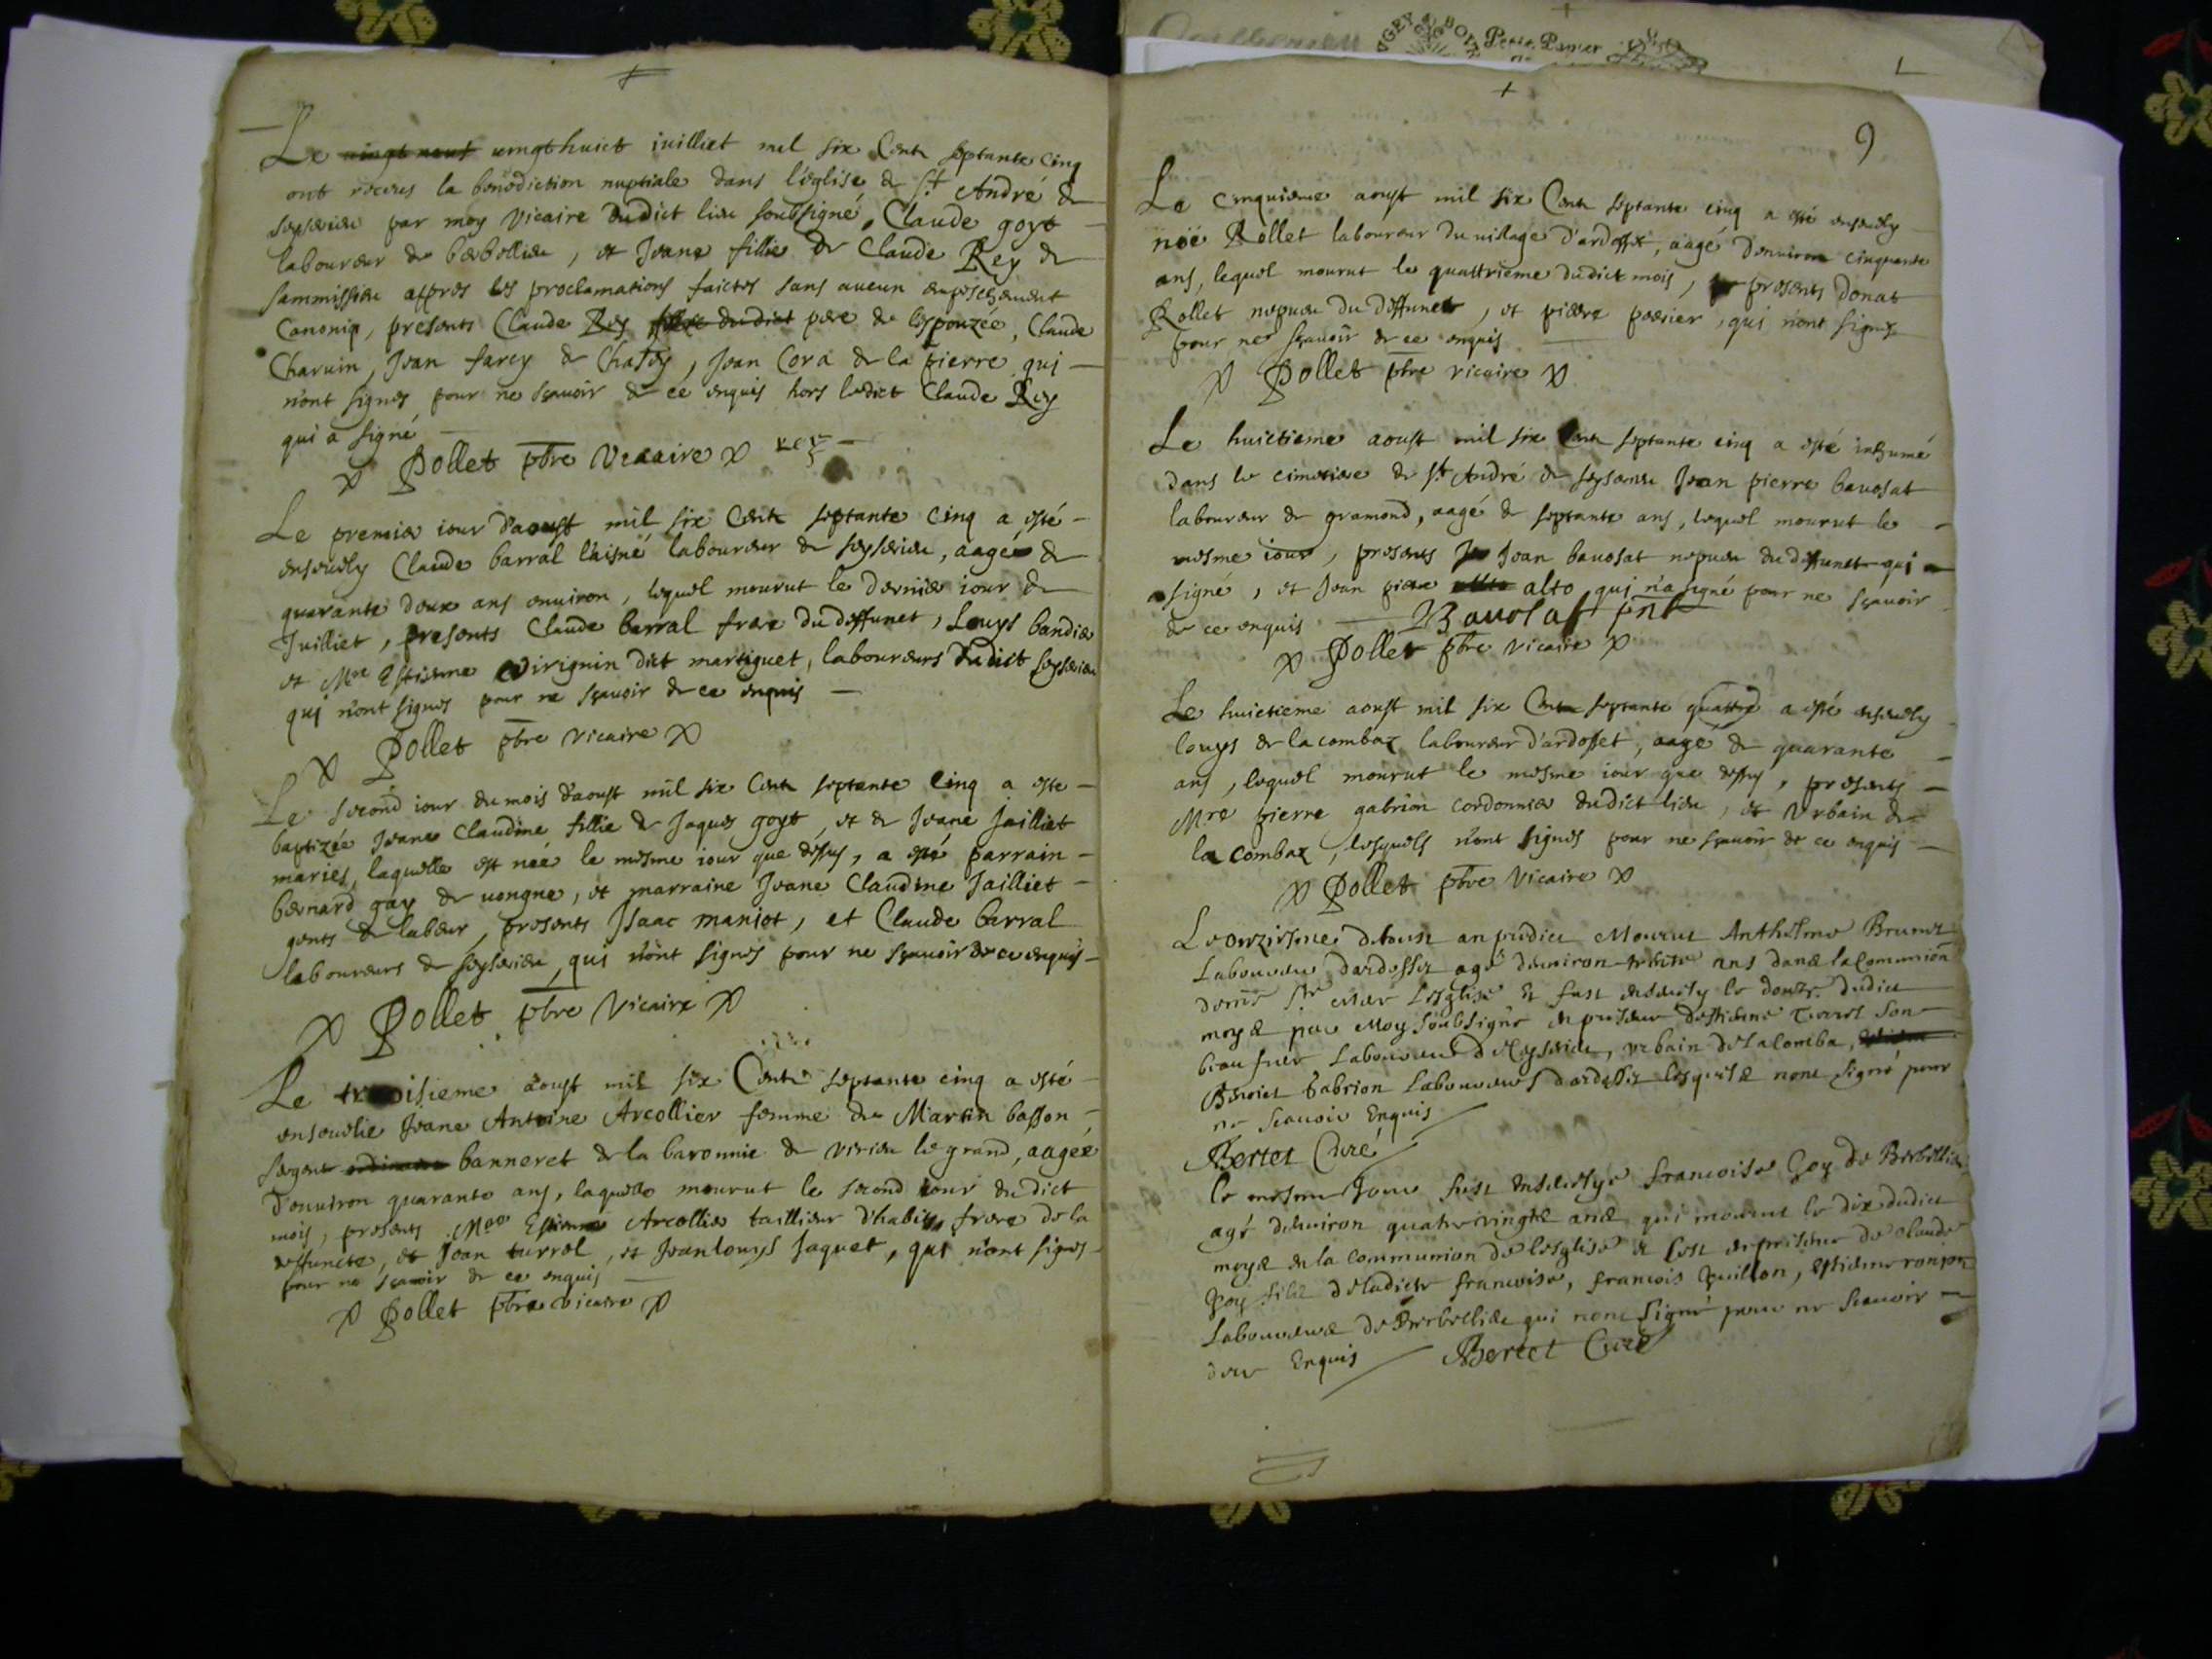 Le vingt neuf vingt huict iuilliet mil six Cent septante cinq
ont receus la benediction nuptiale dans l'église de St André de
seyserieu par moy Vicaire dudict lieu soubsigné, Claude goyt
laboureur de berbellieu, et Jeane fillie de Claude Rey de
sammissieu appres les proclamations faictes sans aucun empeschement
Canonic, presents Claude Rey dudict pere de l'espouzée, Claude
Charuin, Jean farcy de Chastey, Jean Cora de la pierre qui
n'ont signes pour ne sçauoir de ce enquis hors ledict Claude Rey
qui a signé
Pollet pbre Vicaire rey
Le premier iour d'aoust mil six Cent septante cinq a esté
enseuely Claude barral l'aisné laboureur de seyserieu, aagé de
quarante deux ans enuiron, lequel mourut le dernier iour de
Juilliet, presents Claude barral frere du deffunct, Louys bandier
et Mre Estienne virignin dict martiguet, laboureurs dudict seyserieu
qui n'ont signes pour ne sçauoir de ce enquis
Pollet pbre vicaire
Le second iour du mois d'aoust mil six Cent septante cinq a esté
baptizée Jeane Claudine fillie de Jaques goyt, et de Jeane Jailliet
mariés, laquelle est neé le mesme iour que dessus, a esté parrain
bernard gay de uongne, et marraine Jeane Claudine Jailliet
gents de labeur, presents Isaac maniot, et Claude barral
laboureurs de seyserieu, qui n'ont signés pour ne sçauoir de ce enquis
Pollet pbre Vicaire
Le troisieme aoust mil six Cent septante cinq a esté
enseuelie Jeane Antoine Arcollier femme de Martin basson
sergent ordinaire banneret de la baronnie de virieu le grand, aagée
d'enuiron quarante ans, laquelle mourut le second iour dudict
mois, presents Mre Estienne Arcollier taillieur d'habits, frere de la
deffuncte, et Jean turrel, et Jean louys Jaquet, qui n'ont signes
pour ne sçauoir de ce enquis
Pollet pbre vicaire
9
Le cinquieme aoust mil six Cent septante cinq a esté enseuely
noë Rollet laboureur du uillage d'ardosset, aagé d'enuiron cinquante
ans, lequel mourut le quattrieme dudict mois, presents Donat
Rollet nepueu du deffunct, et pierre perier, qui n'ont signes
pour ne sçauoir de ce enquis
Pollet pbre vicaire
Le huictieme aoust mil six Cent septante cinq a esté inhumé
dans le cimetiere de St André de seyserieu Jean pierre bauosat
laboureur de gramond, aagé de septante ans, lequel mourut le
mesme iour, presents Jean bauosat nepueu du deffunct qui a
signé, et Jean pierre alto qui n'a signé pour ne sçauoir
de ce enquis Bauosat pnt
Pollet pbre Vicaire
Le huictieme aoust mil six Cent septante quattre a esté enseuely
louys de lacombaz laboureur d'ardosset, aagé de quarante
ans, lequel mourut le mesme iour que dessus, presents
Mre pierre gabrion cordonnier dudict lieu, et Vrbain de
la combaz, lesquels n'ont signes pour ne sçauoir de ce enquis
Pollet pbre Vicaire
Le onziesme d'aoust an predict Mourut Anthelme Brunet
Laboureur dardosset agé denuiron trente ans dans la Communion
de nre Ste Mere Lesglise Et fust enseuely le douze dudict
moys par Moy soubsigné en presence destienne son
beau frere Laboureur de Ceyserieu, vrbain de la Comba,
Benoict Gabrion Laboureurs dardosset lesquels nont signé pour
ne scauoir Enquis
Bertet Curé
le mesme Jour fust enseuelye francoise Goy de Berbellieu
agé denuiron quatre vingts ans qui mourut le dix dudict
moys en la communion de lesglise et cest en presence de claude
Goy fils de ladicte francoise, francois Guillon, estienne ronjon
Laboureurs de Berbellieu qui nont signé pour ne scauoir
de ce Enquis Bertet Curé